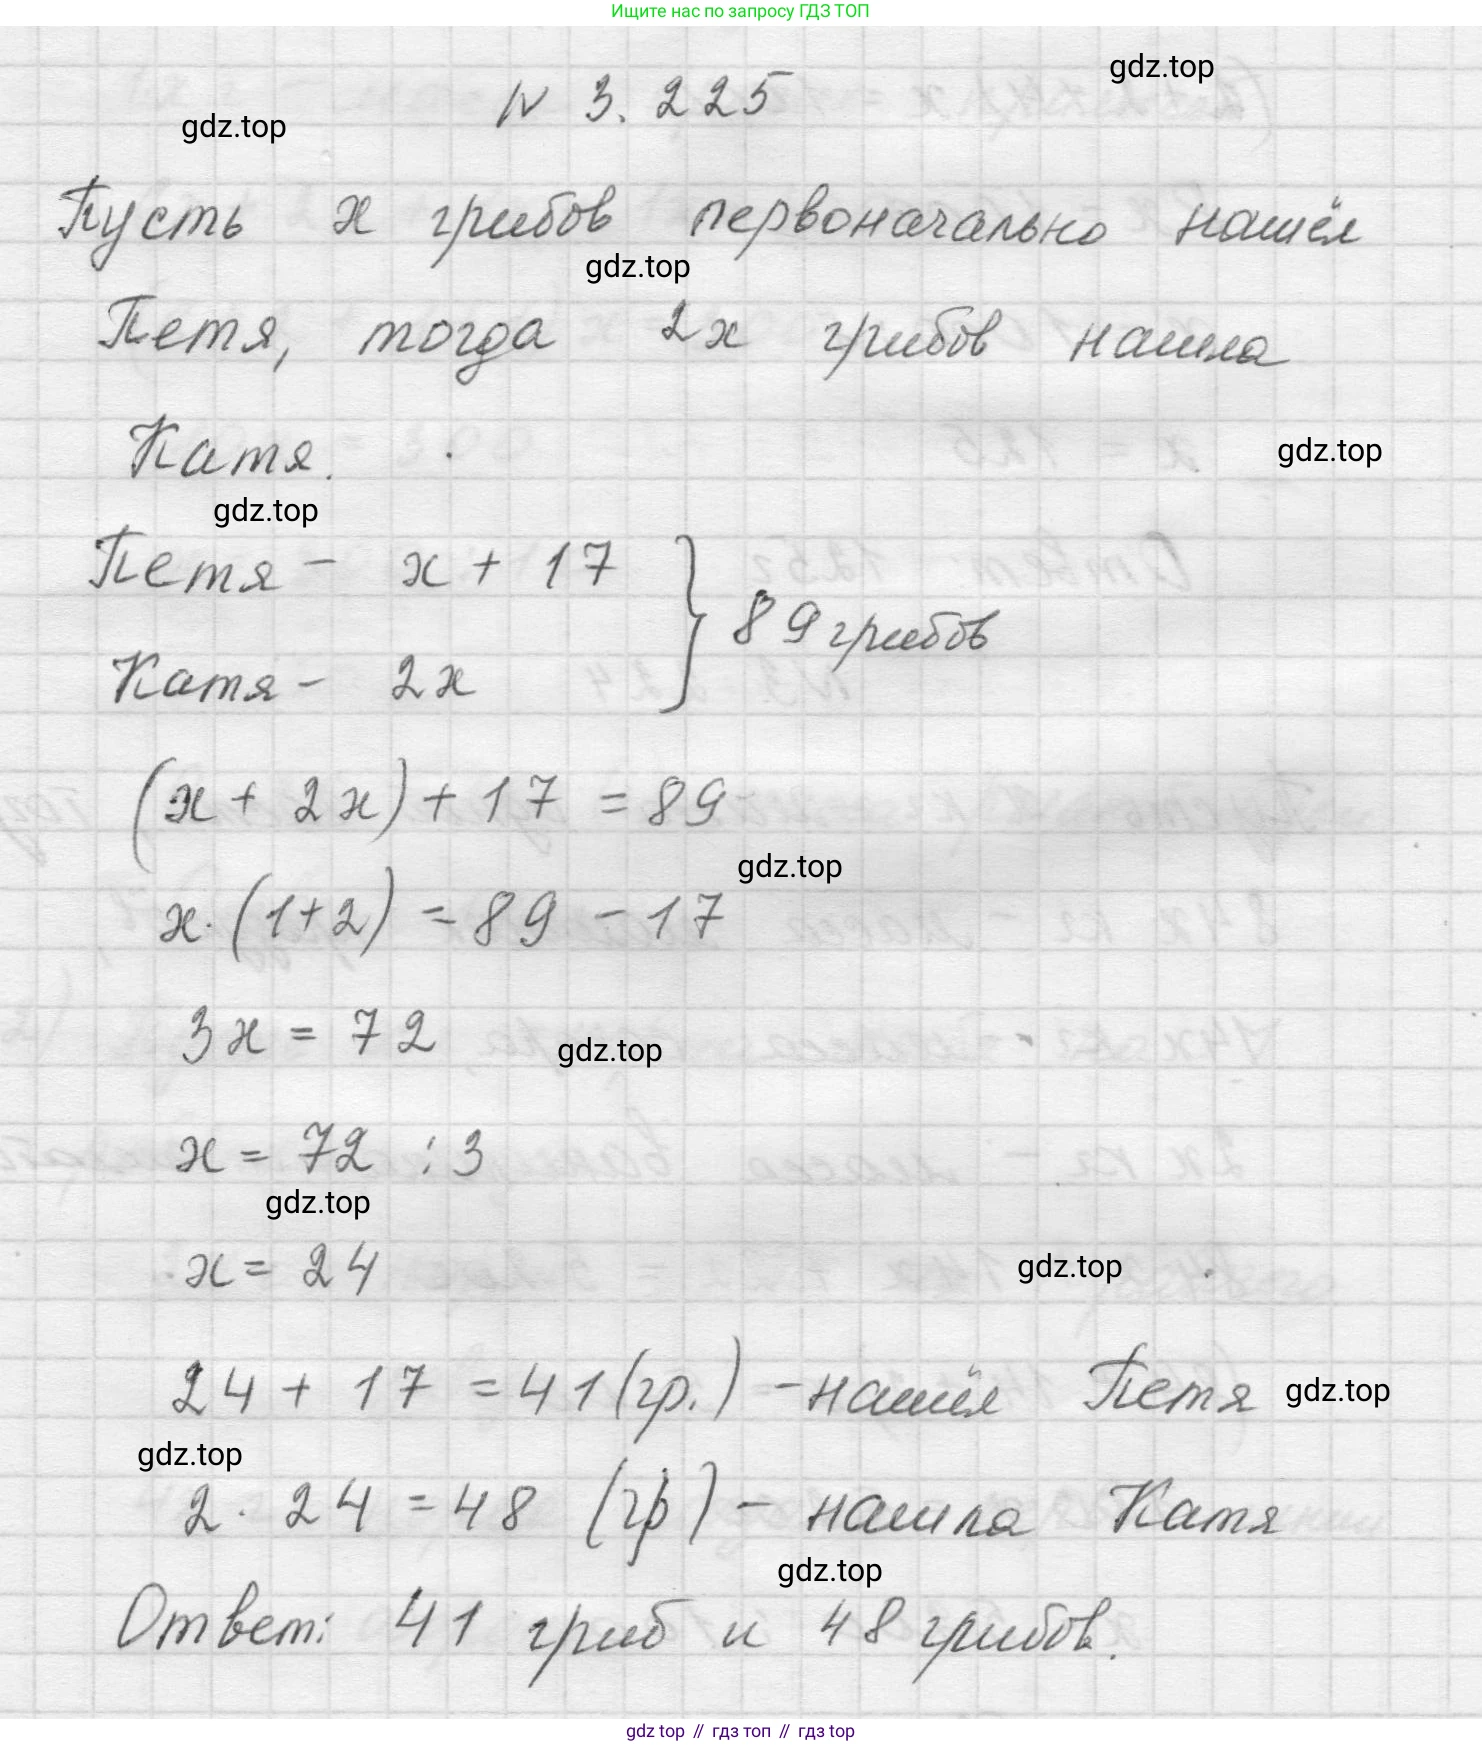 Ищите нас по запросу ГДЗ ТОП
gdz.top
N 3.225
gdz.top
Пусть x грибов первоначально нашёл
gdz.top
Петя, тогда 2x грибов нашла
Катя.
gdz.top
gdz.top
Петя - x + 17
89 грибов
Катя - 2x
(x + 2x) + 17 = 89
gdz.top
x · (1+2) = 89 - 17
3x = 72
gdz.top
x = 72 : 3
gdz.top
x = 24
gdz.top
24 + 17 = 41 (гр.) - нашёл Петя
gdz.top
gdz.top
2 · 24 = 48 (гр) - нашла Катя
gdz.top
Ответ: 41 гриб и 48 грибов.
gdz top // гдз топ // гдз top